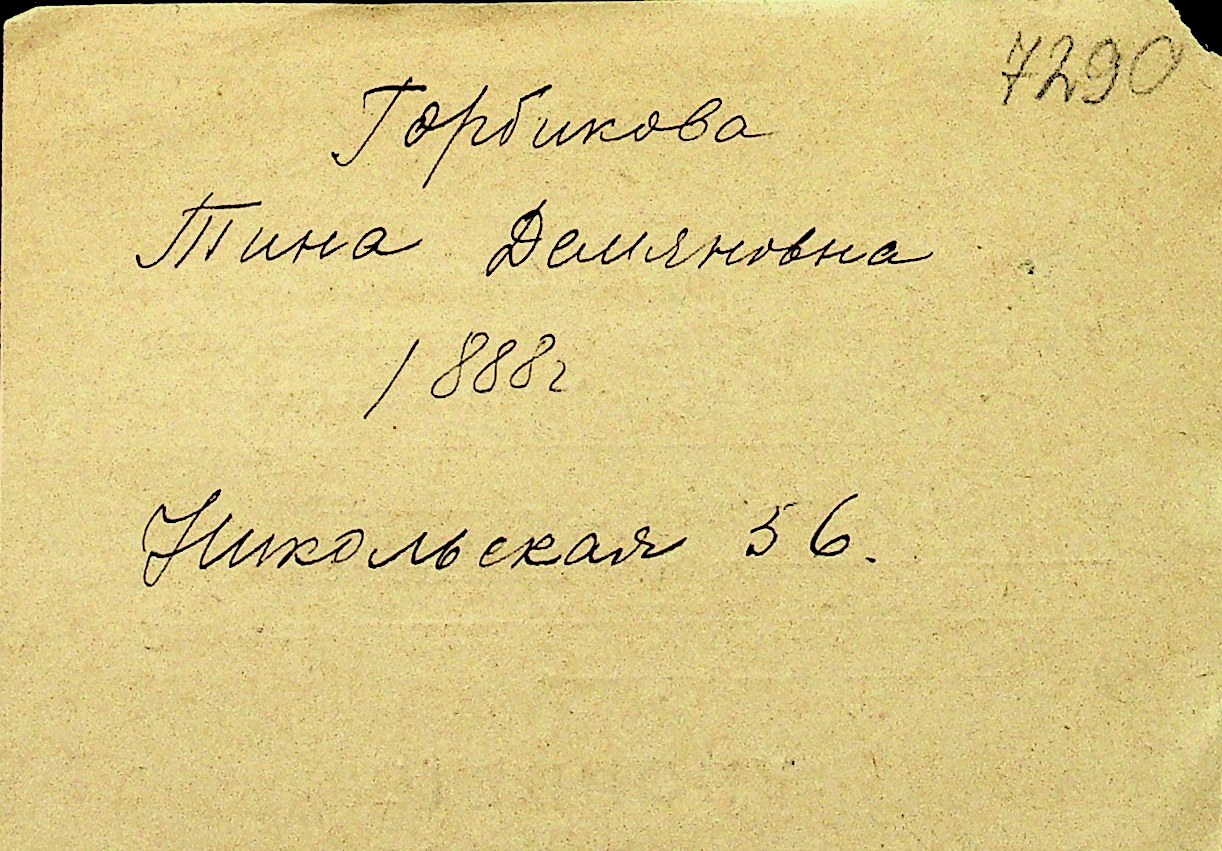 7290
Горбикова
Тина Демяновна
1888г
Никольская 56.